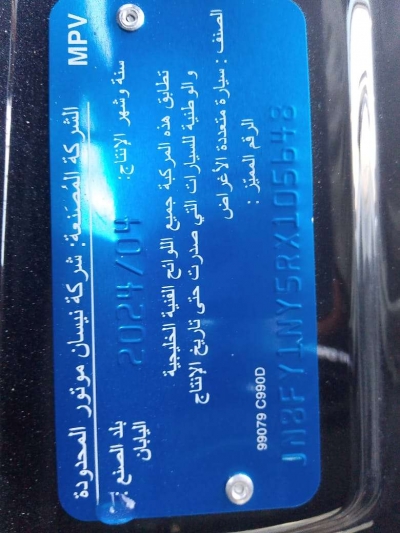 الشركة المُصَنعة: شركة نيسان موتور المحدودة
MPV
سنة وشهر الإنتاج: 2024/04
بلد الصنع:
اليابان
تطابق هذه المركبة جميع اللوائح الفنية الخليجية
والوطنية للسيارات التي صدرت حتى تاريخ الإنتاج
الصنف : سيارة متعددة الأغراض
الرقم المميّز :
JN8FY1NY5RX105648
99079 C990D